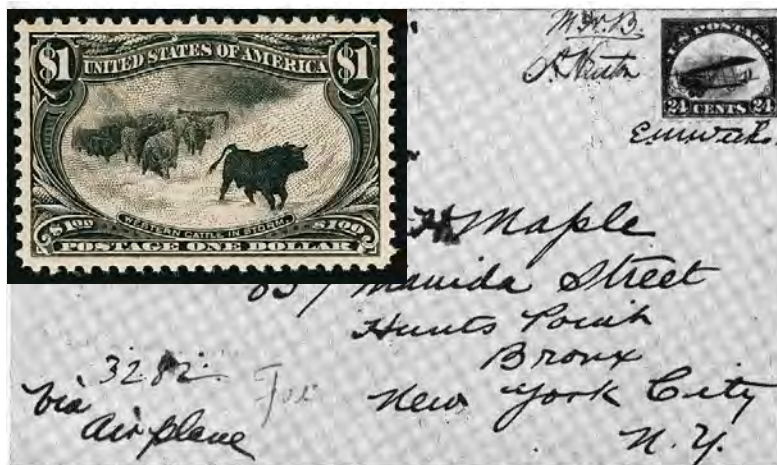 $1 UNITED STATES OF AMERICA $1
$1.00 WESTERN CATTLE IN STORM. $1.00
POSTAGE ONE DOLLAR
U.S. POSTAGE
24 CENTS 24
Maple
Street
Hunts Point
Bronx
New York City
N.Y.
3282
Via
Airplane